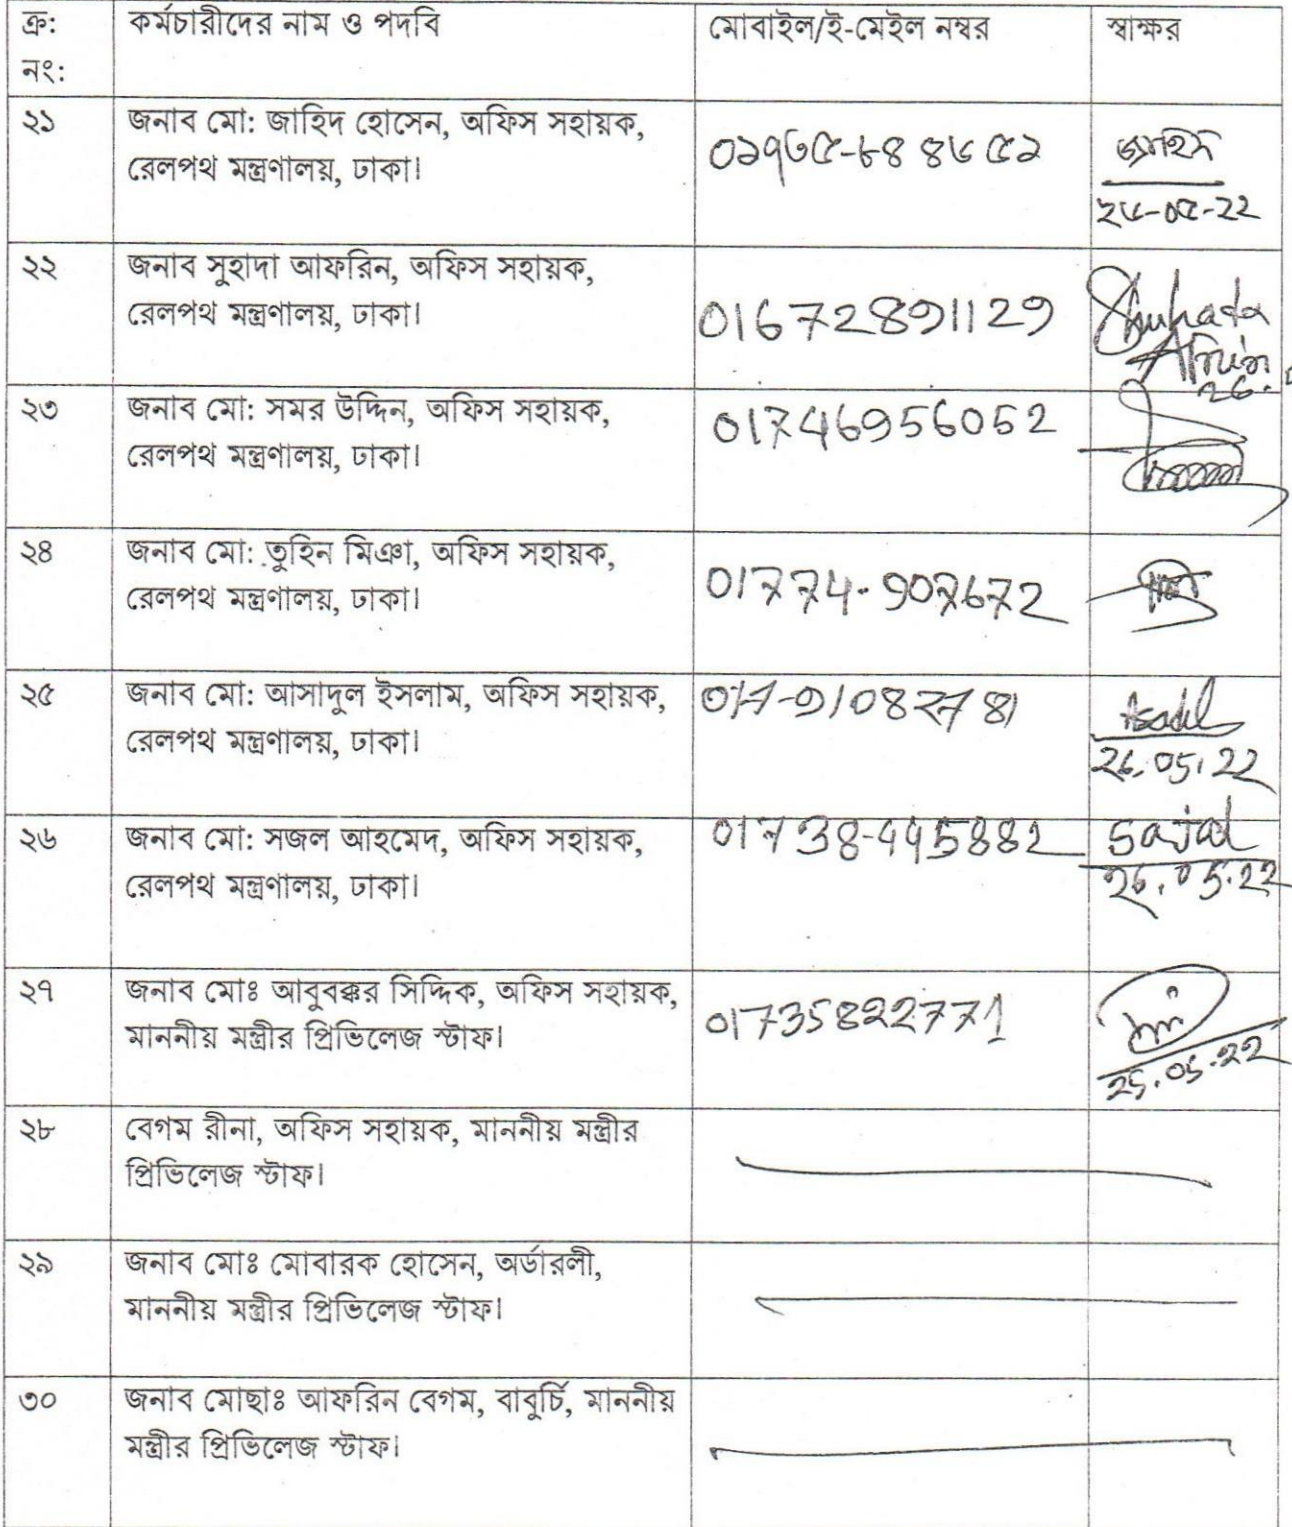 ক্র: কর্মচারীদের নাম ও পদবি মোবাইল/ই-মেইল নম্বর স্বাক্ষর
নং:
২১ জনাব মো: জাহিদ হোসেন, অফিস সহায়ক,
রেলপথ মন্ত্রণালয়, ঢাকা। জাহিদ
২৬-০৫-২২
২২ জনাব সুহাদা আফরিন, অফিস সহায়ক,
রেলপথ মন্ত্রণালয়, ঢাকা। 01672891129 Shuhada
Afrin
26.
২৩ জনাব মো: সমর উদ্দিন, অফিস সহায়ক, 01746956052
রেলপথ মন্ত্রণালয়, ঢাকা।
২৪ জনাব মো: তুহিন মিঞা, অফিস সহায়ক,
রেলপথ মন্ত্রণালয়, ঢাকা। 01774-907672
২৫ জনাব মো: আসাদুল ইসলাম, অফিস সহায়ক, Asadul
রেলপথ মন্ত্রণালয়, ঢাকা। 26.05.22
২৬ জনাব মো: সজল আহমেদ, অফিস সহায়ক, 01738-445882 Sajal
রেলপথ মন্ত্রণালয়, ঢাকা। 26.05.22
২৭ জনাব মোঃ আবুবক্কর সিদ্দিক, অফিস সহায়ক,
মাননীয় মন্ত্রীর প্রিভিলেজ স্টাফ। 01735822771
25.05.22
২৮ বেগম রীনা, অফিস সহায়ক, মাননীয় মন্ত্রীর
প্রিভিলেজ স্টাফ।
২৯ জনাব মোঃ মোবারক হোসেন, অর্ডারলী,
মাননীয় মন্ত্রীর প্রিভিলেজ স্টাফ।
৩০ জনাব মোছাঃ আফরিন বেগম, বাবুর্চি, মাননীয়
মন্ত্রীর প্রিভিলেজ স্টাফ।